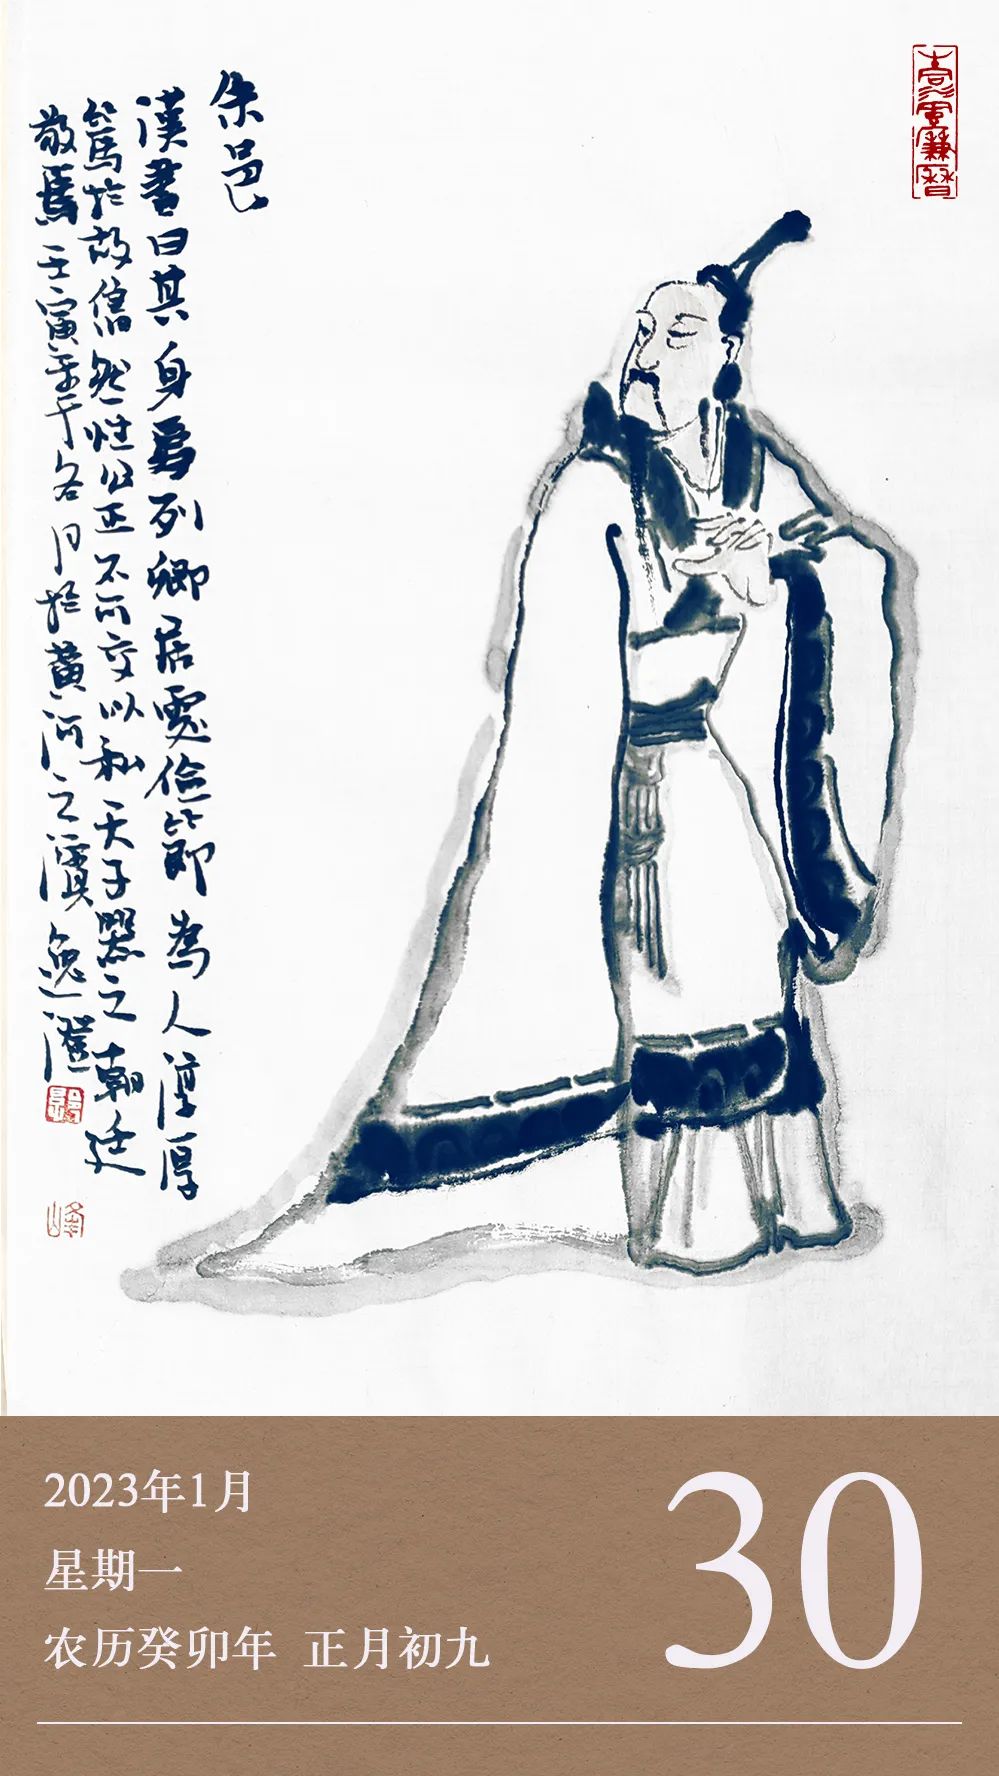 朱邑
漢書曰其身爲列卿居處儉節為人淳厚
篤於故舊然性公正不可交以私天子器之朝廷
敬焉壬寅年冬月於黃河之濱逸澄
峰
2023年1月
30
星期一
农历癸卯年 正月初九